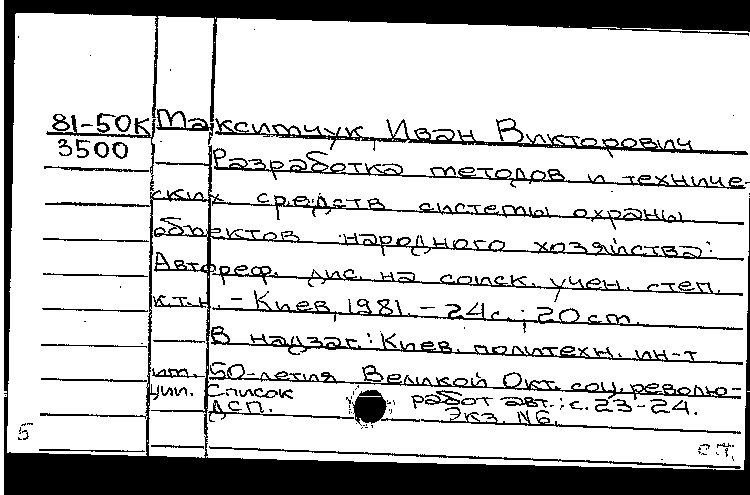 81-50К Максимчук, Иван Викторович
3500 Разработка методов и техниче-
ских средств системы охраны
объектов народного хозяйства:
Автореф. дис. на соиск. учен. степ.
к.т.н. - Киев, 1981. - 24с.; 20 см.
В надзаг.: Киев. политехн. ин-т
им. 50-летия Великой Окт. соц. револю-
ции. Список работ авт.: с. 23-24.
ДСП. Экз. №6.
5 С.Т.